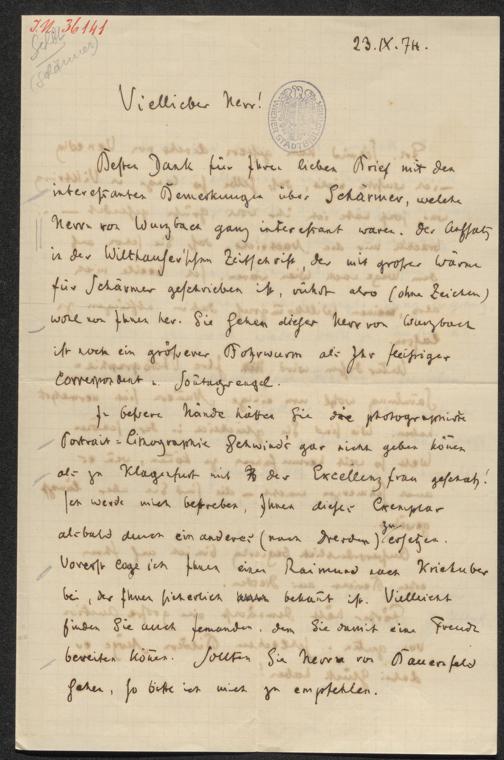 I.N. 36141
23. IX. 74.
Viellieber Herr!
Besten Dank für Ihren lieben Brief mit den
interessanten Bemerkungen über Schärmer, welche
Herrn von Wurzbach ganz interessant waren. Der Aufsatz
in der Zeitschrift, der mit großer Wärme
für Schärmer geschrieben ist, rührt also (ohne Zeichen)
wohl von Ihnen her. Sie sehen dieser Herr von Wurzbach
ist noch ein größerer Bohrwurm als Ihr fleißiger
Correspondent u.
In bessere Hände hätten Sie die photographirte
Portrait-Lithographie Schwind's gar nicht geben könen
als zu Klagenfurt mit der Excellenzfrau
Ich werde mich bestreben, Ihnen dieses Exemplar
alsbald durch ein anderes (nach Dresden) zu ersetzen.
Vorerst lege ich Ihnen einen Raimund nach Kriehuber
bei, der Ihnen sicherlich bekant ist. Vielleicht
finden Sie auch jemanden, dem Sie damit eine Freude
bereiten könen. Sollten Sie Herrn von Bauernfeld
sehen, so bitte ich mich zu empfehlen.